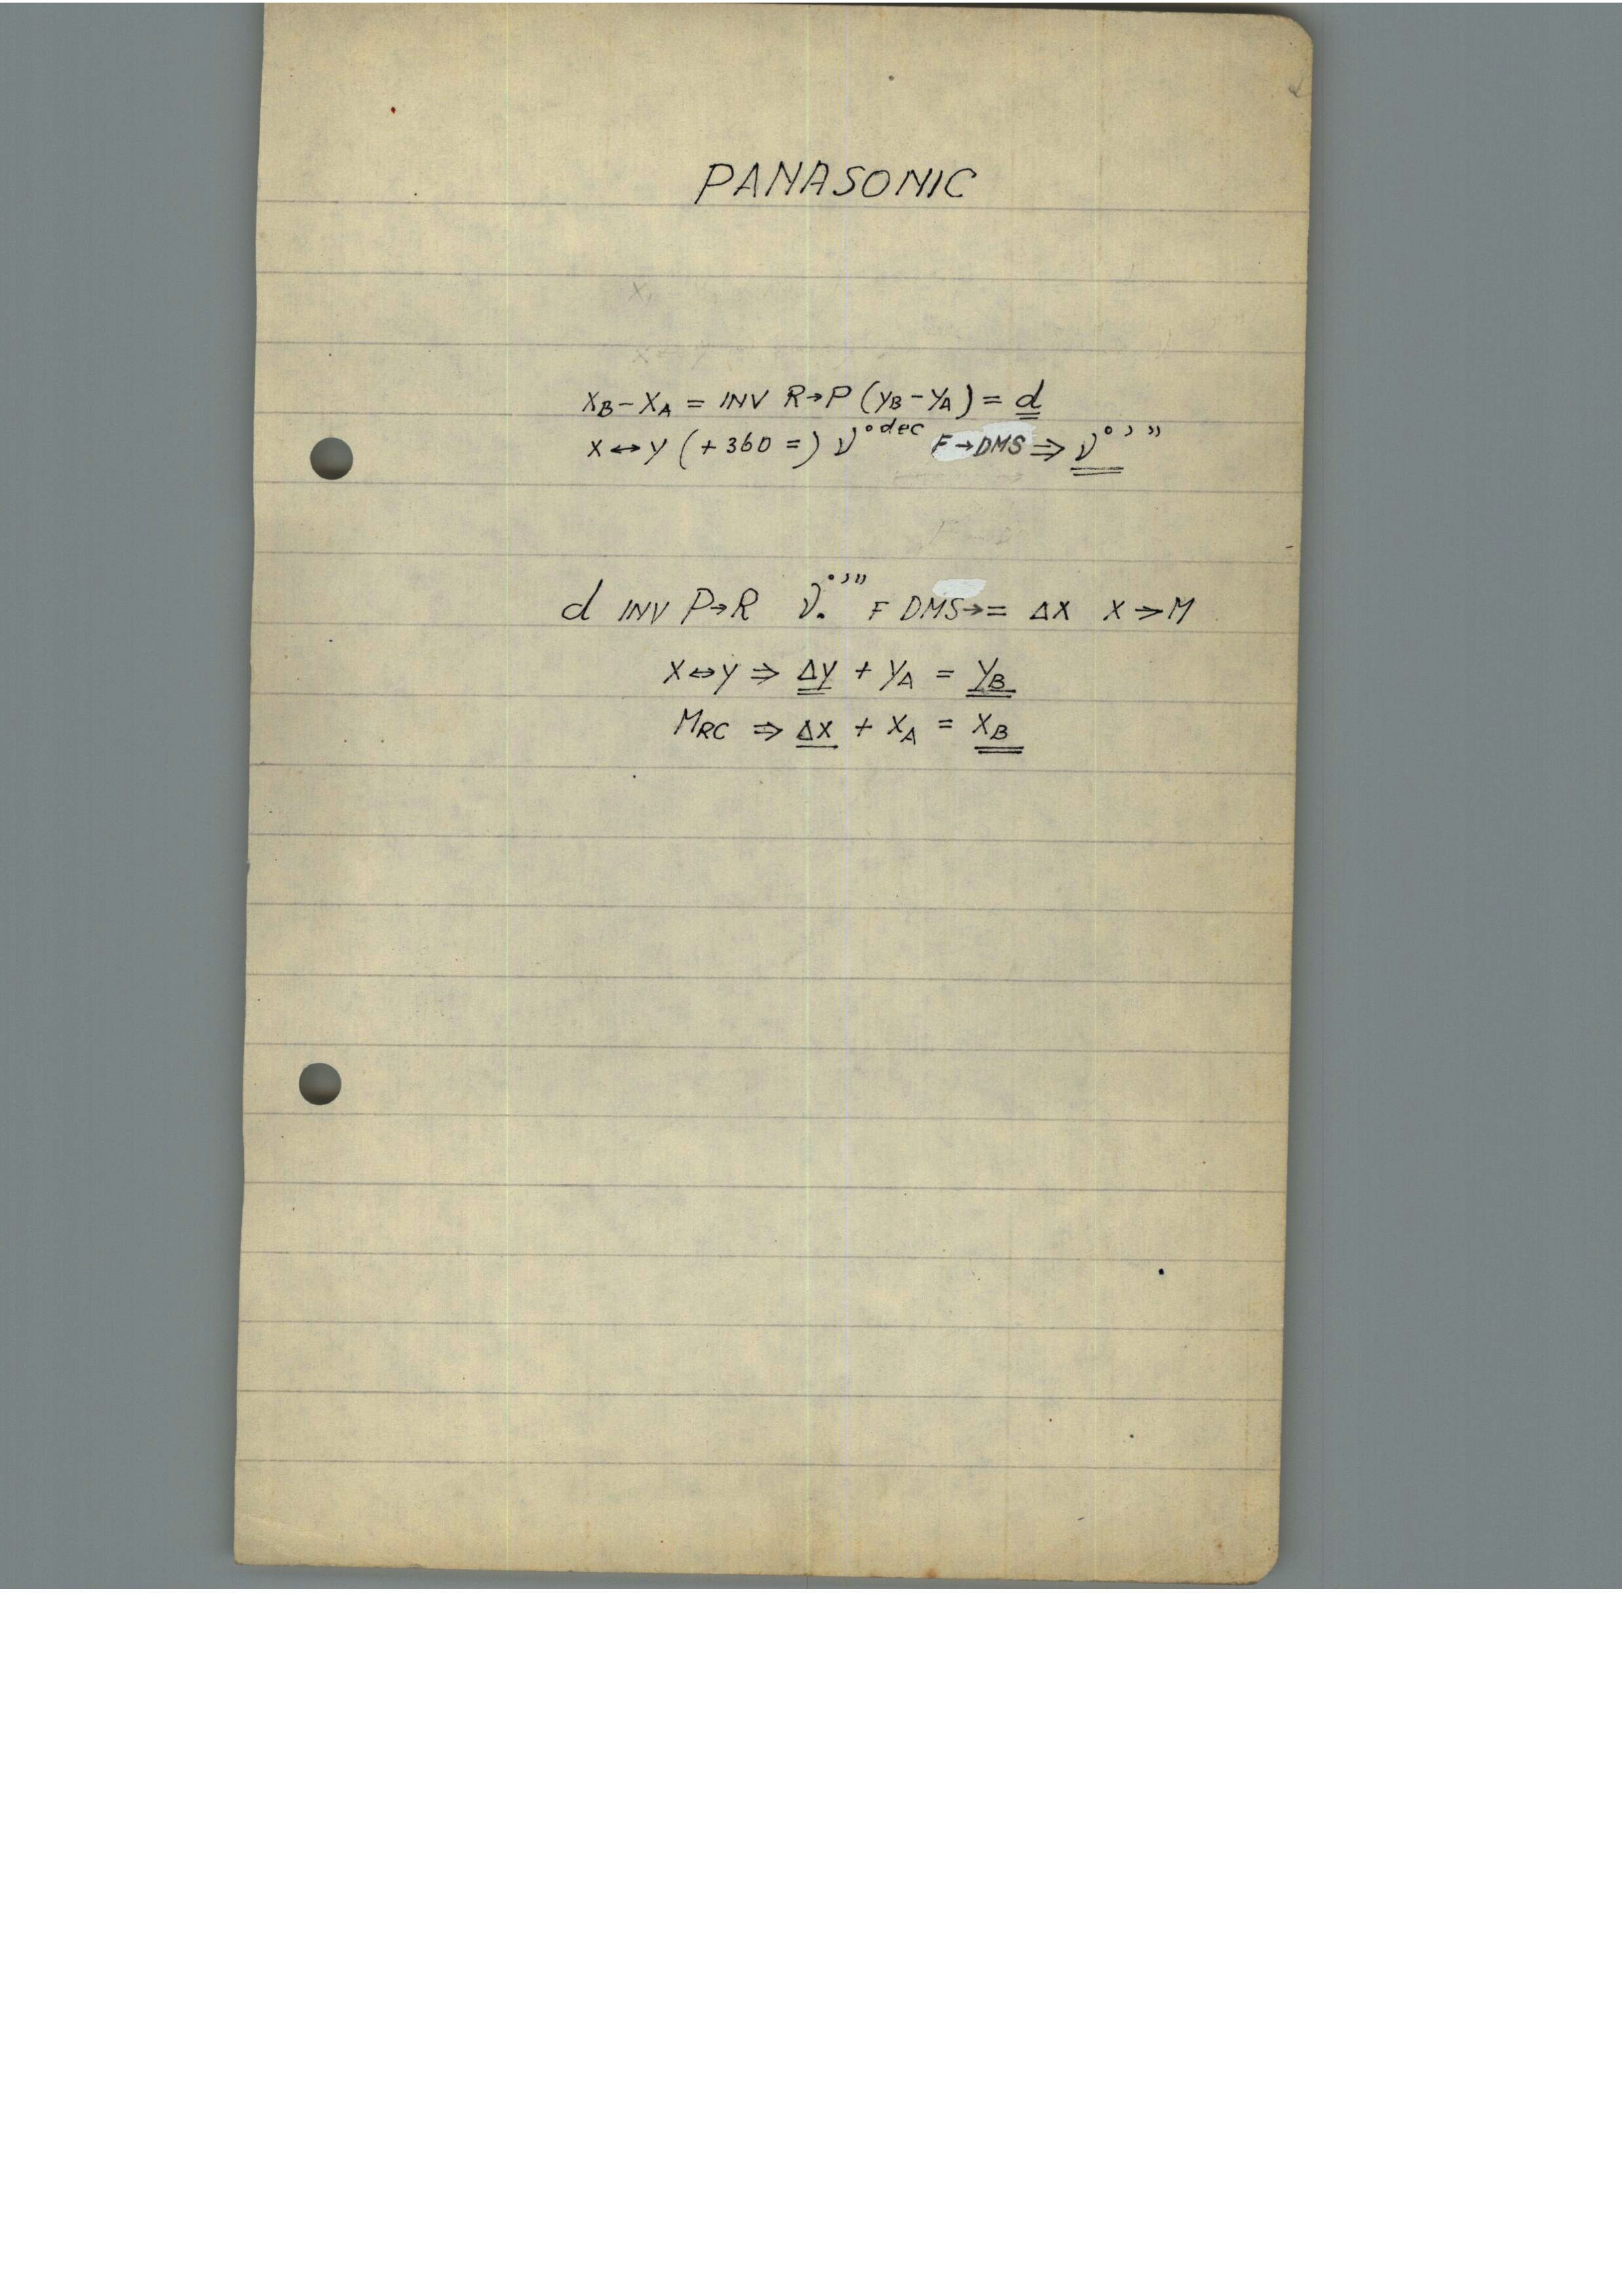 PANASONIC
XB-XA = INV R→P (YB-YA) = d
X↔Y (+360=) ν°dec F→DMS ⇒ ν°'"
d INV P→R ν.°'" F DMS→= ΔX X→M
X↔Y ⇒ ΔY + YA = YB
MRC ⇒ ΔX + XA = XB